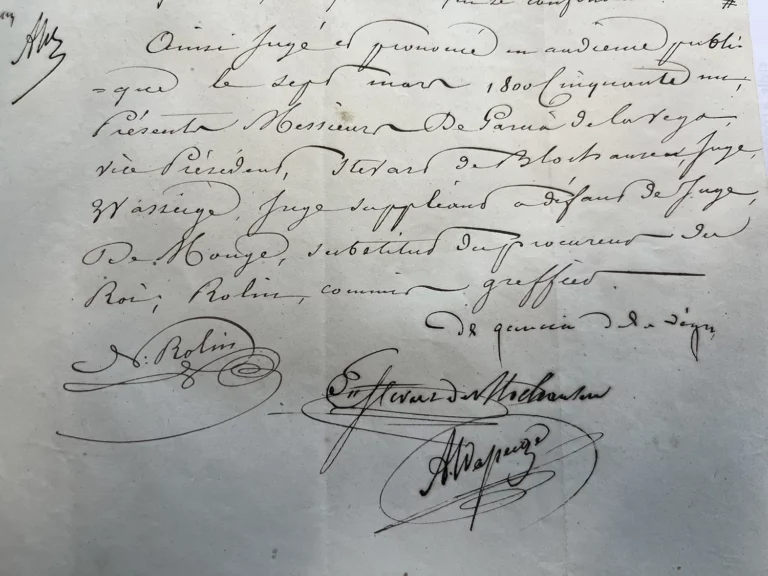 #
Ainsi Jugé et prononcé en audience publi-
=que le sept mars 1800 Cinquante un,
Présents Messieurs De Garcia de la Vega,
vice Président, Stevart de Blochausen, Juge,
Wasseige, Juge suppléant à défaut de Juge,
De Mouge, substitut du procureur du
Roi, Rolin, commis greffier.
de garcia de la véga
N. Rolin
Stevart de Blochausen
A. Wasseige